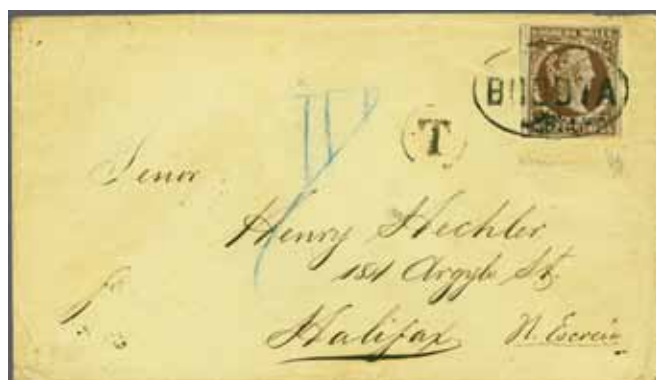 BOGOTA
T
Senor
Henry Hechler
184 Argyle St.
Halifax
N. Escocia